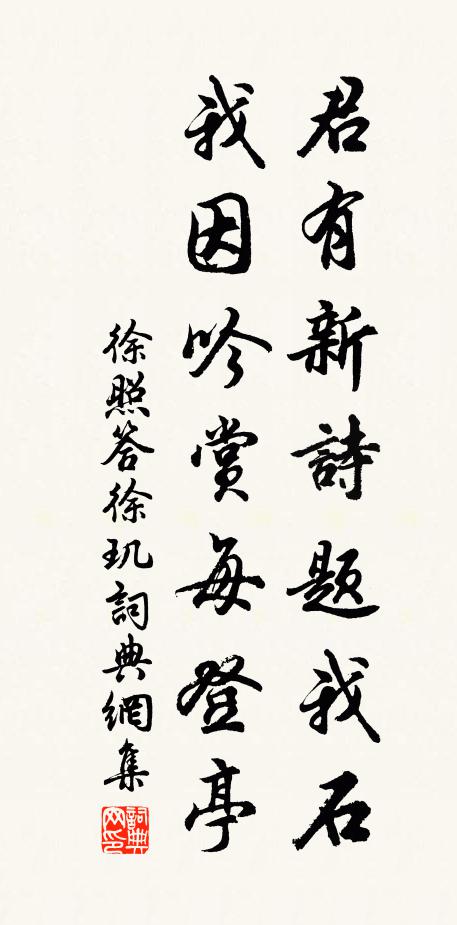 君有新詩題我石
我因吟賞每登亭
徐照答徐玑詞典網集
詞典网印